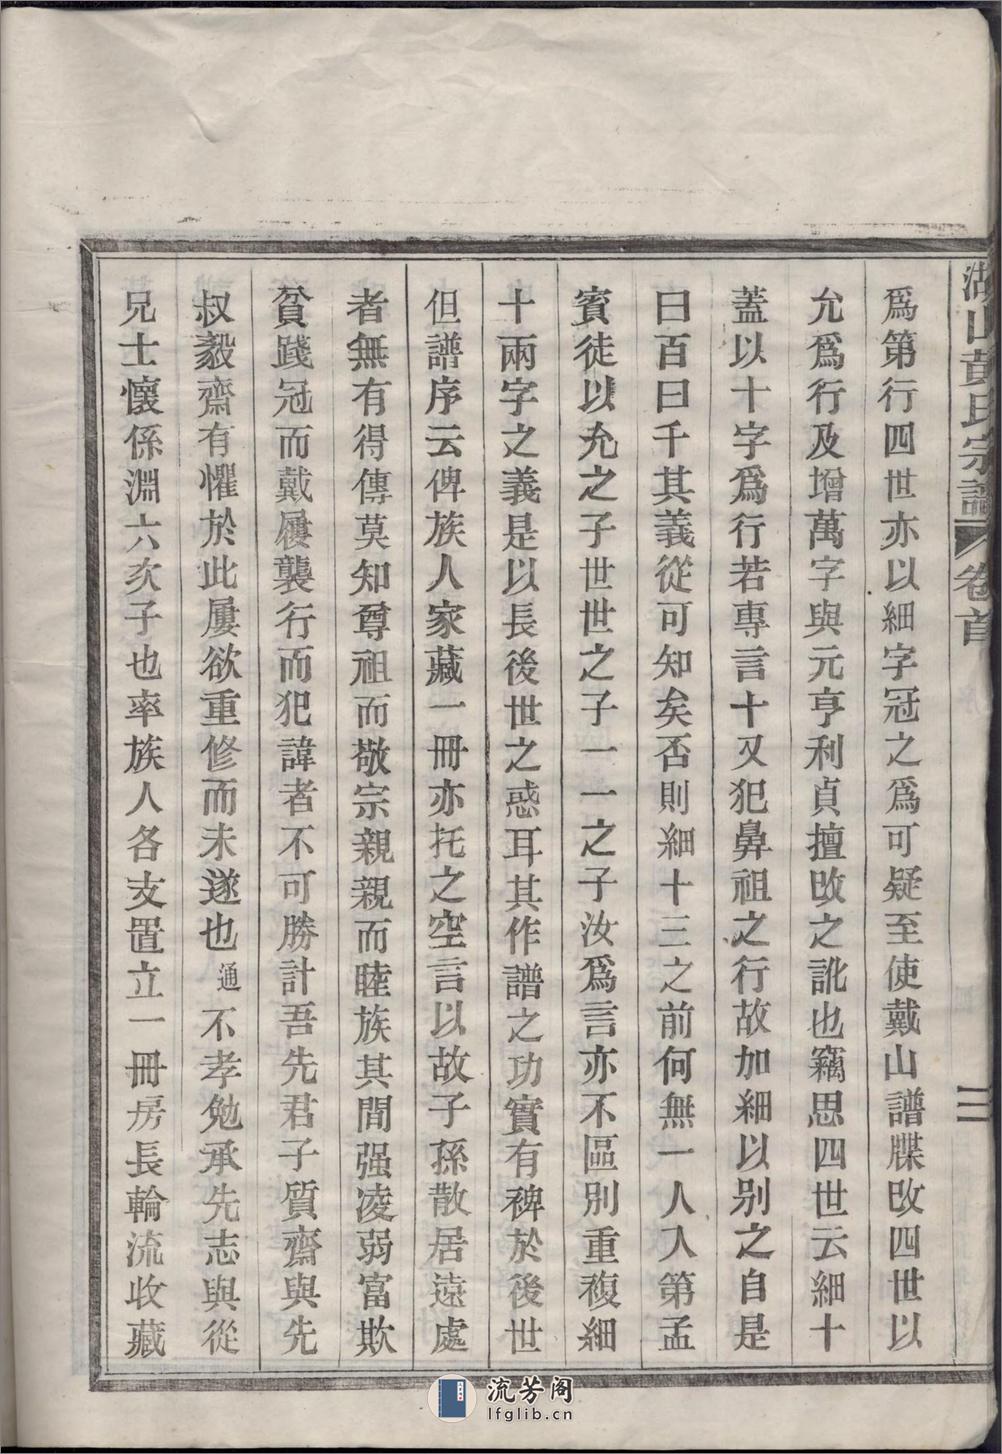 湖山黄氏宗譜 卷首
爲第行四世亦以細字冠之爲可疑至使戴山譜牒改四世以
允爲行及增萬字與元亨利貞擅改之訛也竊思四世云細十
蓋以十字爲行若專言十又犯鼻祖之行故加細以別之自是
曰百曰千其義從可知矣否則細十三之前何無一人入第孟
賓徒以允之子世世之子一一之子汝爲言亦不區別重複細
十兩字之義是以長後世之惑耳其作譜之功實有裨於後世
但譜序云俾族人家藏一冊亦托之空言以故子孫散居遠處
者無有得傳莫知尊祖而敬宗親親而睦族其間强凌弱富欺
貧踐冠而戴屨襲行而犯諱者不可勝計吾先君子質齋與先
叔毅齋有懼於此屢欲重修而未遂也通不孝勉承先志與從
兄士懷係淵六次子也率族人各支置立一冊房長輪流收藏
三
流芳阁
lfglib.cn